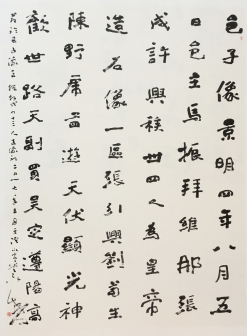 邑子像景明四年八月五
日邑主馬振拜維那張
成許興族卅四人為皇帝
造石像一區張引興劉苟生
陳野虎天伏顯光神
歡世路天副買吳定遵陽高